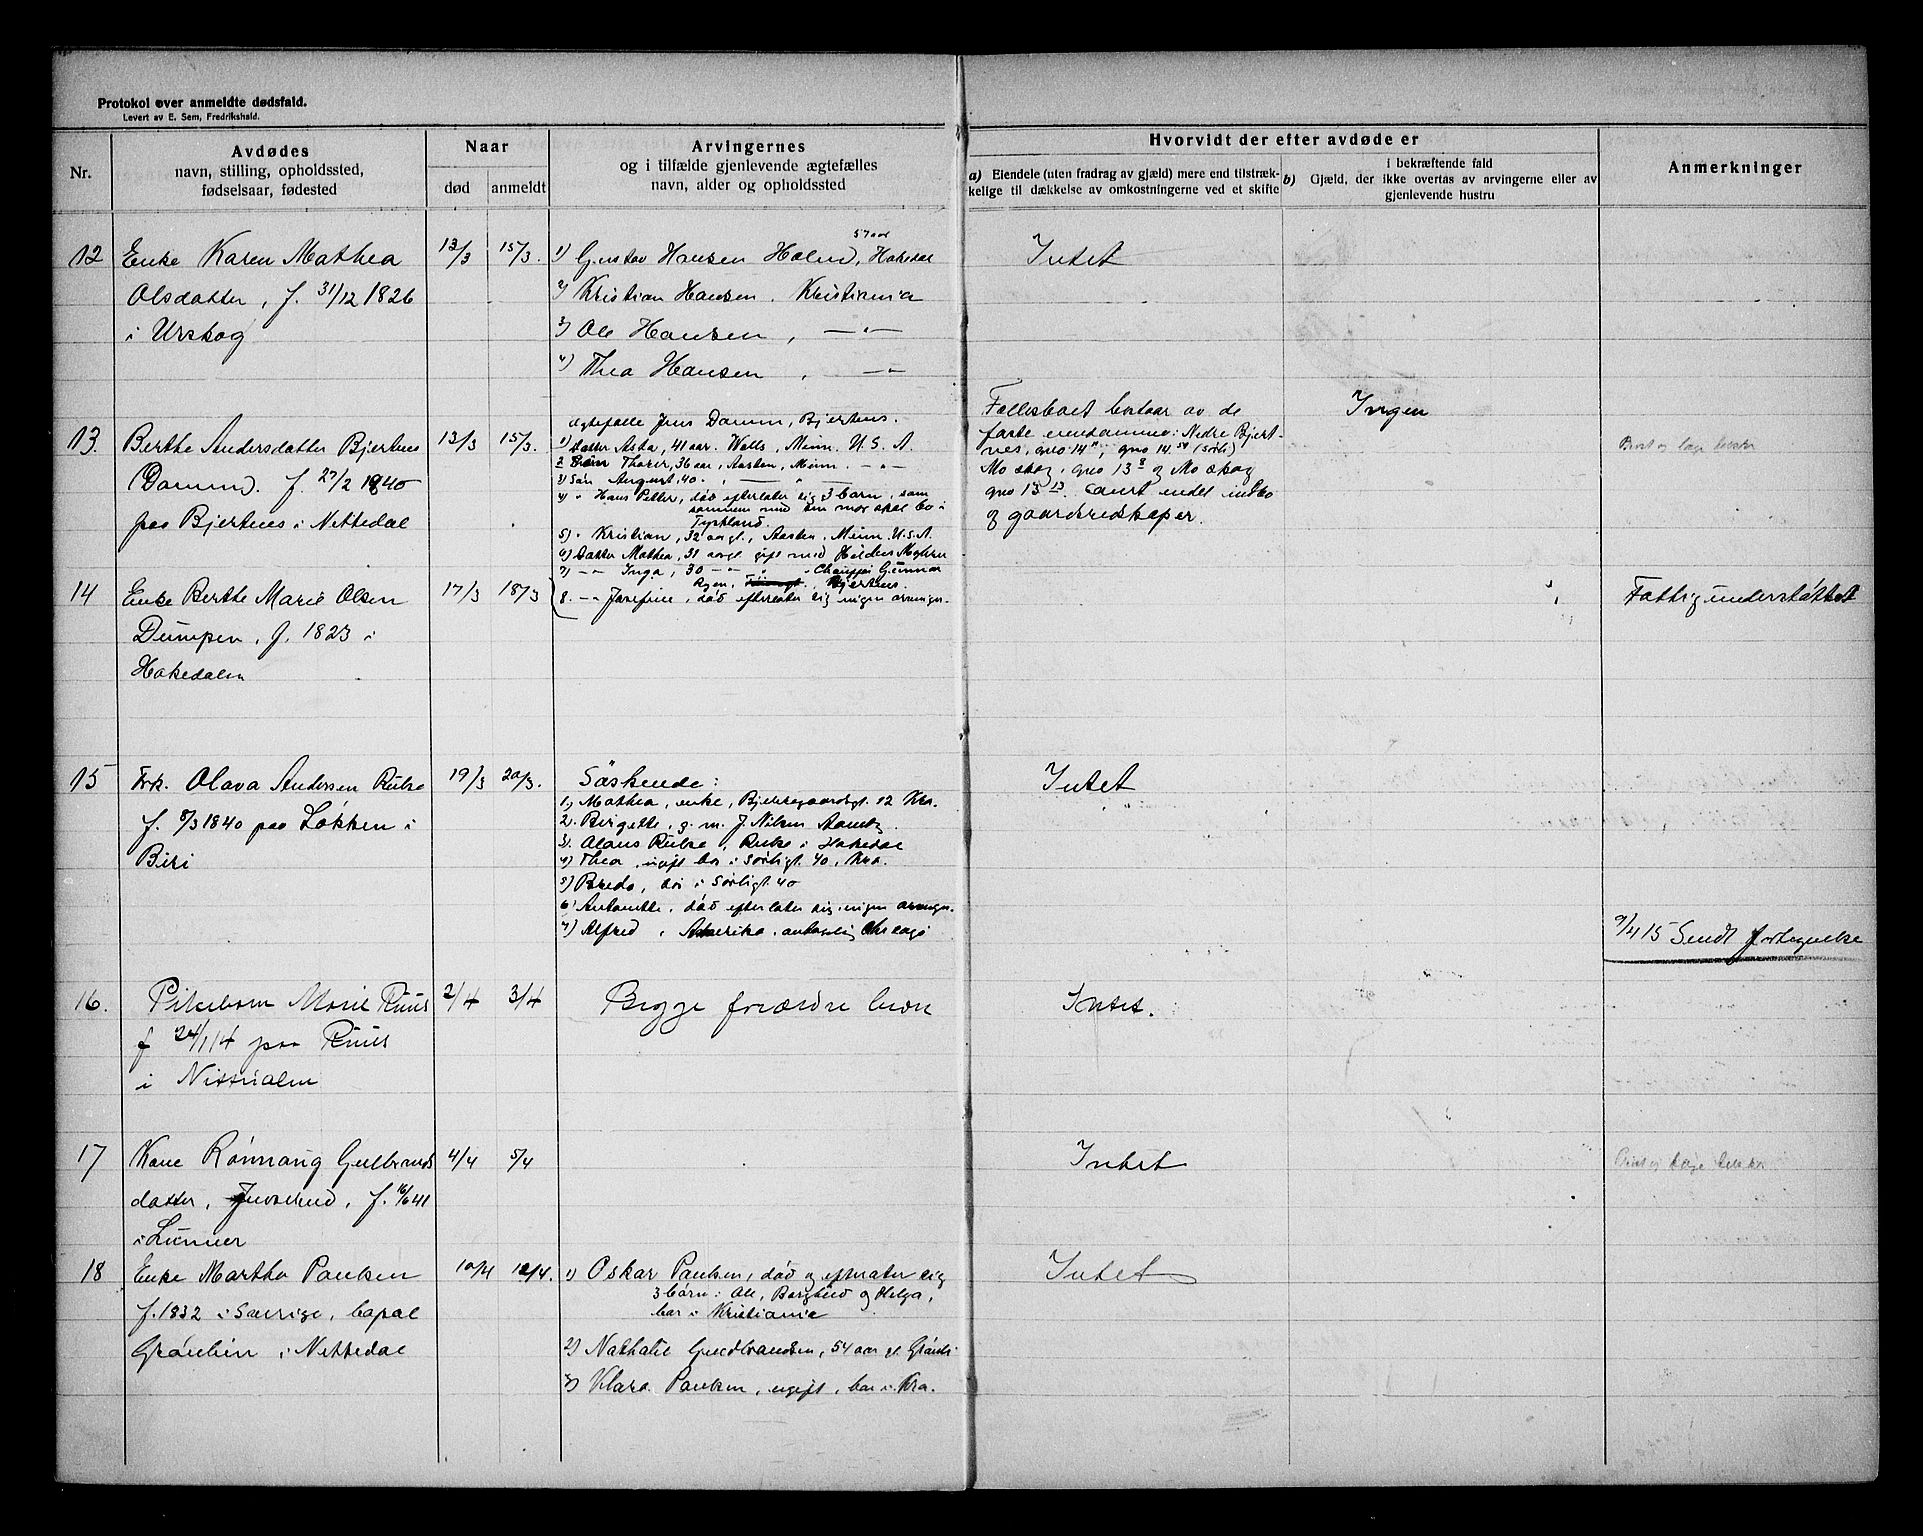 Protokol over anmeldte dødsfald.
Levert av E. Sem, Fredrikshald.
Nr.
Avdødes
navn, stilling, opholdssted,
fødselsaar, fødested
Naar
død
anmeldt
Arvingernes
og i tilfælde gjenlevende ægtefælles
navn, alder og opholdssted
Hvorvidt der efter avdøde er
a) Eiendele (uten fradrag av gjæld) mere end tilstræk-
kelige til dækkelse av omkostningerne ved et skifte
i bekræftende fald
b) Gjæld, der ikke overtas av arvingerne eller av
gjenlevende hustru
Anmerkninger
12
Enke Karen Mathea
Olsdatter, f. 31/12 1826
i Urskog
13/3
15/3.
57 aar
1) Gustav Hansen Holm, Hakedal
2) Kristian Hansen. Kristiania
3) Ole Hansen, —"—
4) Thea Hansen, —"—
Intet
13.
Berthe Andersdatter Bjertnes
Damm. f. 27/2 1840
paa Bjertnes i Nittedal
13/3
15/3.
Ægtefælle Jens Damm, Bjertnes.
1) Datter Asta, 41 aar. Wells, Minn. U.S.A.
2 Sön Thorer, 36 aar, Aasten, Minn. —"—
3) Sön August, 40. —"—
4) " Hans Petter, död efterlater sig 3 barn, som
sammen med sin mor skal bo i
Tyskland.
5) " Kristian, 32 aargl., Aasten, Minn. U.S.A.
6) Datter Mathea, 31 aargl gift med
7) —"— Inga, 30 —"— " Chauffør Gunnar
Ryen, Bjertnes.
8. —"— Josefine, död efterlater sig ingen arvinger.
Fællesboet bestaar av de
faste eiendomme: Nedre Bjert-
nes, gno 14, gno 14.54 (Sörli)
Mo skog, gno 13 8 og Mo skog
gno 13 13. Samt endel indbo
og gaardsredskaper.
Ingen
14
Enke Berthe Marie Olsen
Dumpen, f. 1823 i
Hakedalen
17/3
18/3
Fattigunderstöttet
15
Frk. Olava Andersen Rulse
f. 8/3 1840 paa Løkken i
Biri
19/3
20/3.
Söskende:
1) Mathea, enke, Bjerregaardsgt. 12 Kra.
2. Birgette, g. m. J. Nilsen
3. Olaus Rulse, Rulse i Hakedal
4) Thea, ugift bor i Sørligt. 40, Kra.
5) Bredo, bor i Sørligt. 40
6) Antonette, död efterlater sig ingen arvinger.
7) Alfred, Amerika, antagelig Chicago
Intet
9/4 15 Sendt fortegnelse
16.
Pikebarn Marie Ruus
f 24/1 14 paa Ruus
i Nittedalen
2/4
3/4
Begge forældre lever
Intet.
17
Kone Rönnaug Gulbrands
datter, f. 16/6 41
i Lunner
4/4
5/4
Intet
18
Enke Martha Paulsen
f. 1832 i Sverige, bopæl
i Nittedal
10/4
12/4.
1) Oskar Paulsen, död og efterlater sig
3 börn: Ole, Borghild og Helga,
bor i Kristiania
2) Nathalie Guldbrandsen, 54 aar gl.
3) Klara Paulsen, ugift, bor i Kra.
Intet